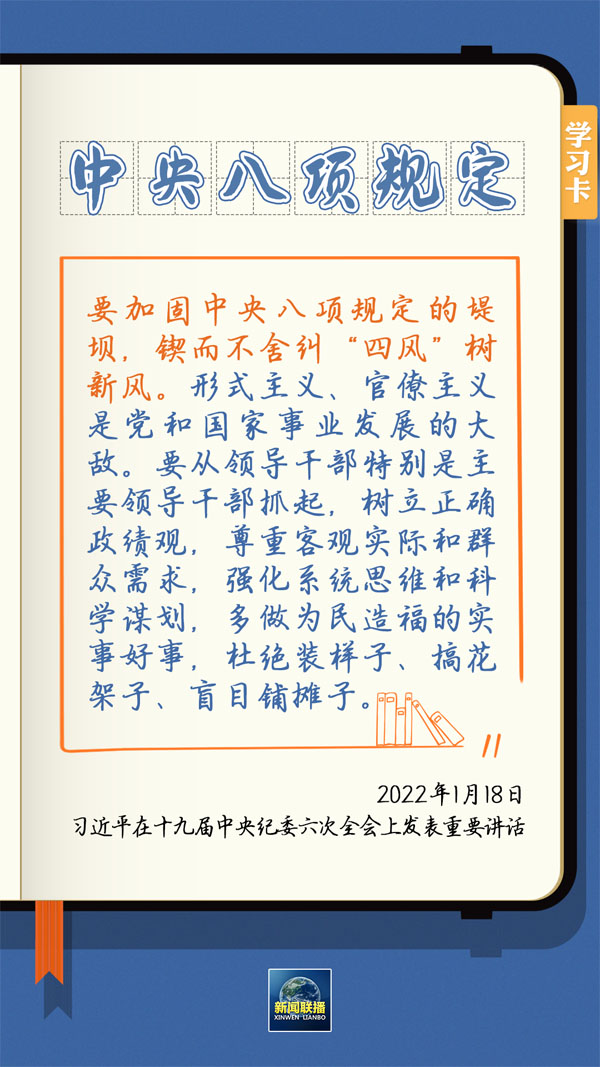 学习卡
中央八项规定
要加固中央八项规定的堤
坝，锲而不舍纠“四风”树
新风。形式主义、官僚主义
是党和国家事业发展的大
敌。要从领导干部特别是主
要领导干部抓起，树立正确
政绩观，尊重客观实际和群
众需求，强化系统思维和科
学谋划，多做为民造福的实
事好事，杜绝装样子、搞花
架子、盲目铺摊子。
2022年1月18日
习近平在十九届中央纪委六次全会上发表重要讲话
新闻联播
XINWEN LIANBO